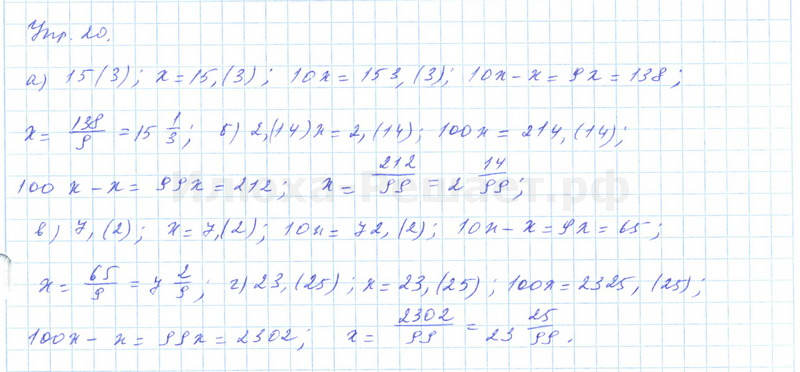 Упр. 20.
а) 15(3); x = 15,(3); 10x = 153,(3); 10x - x = 9x = 138;
x = 138/9 = 15 1/3; б) 2,(14) x = 2,(14); 100x = 214,(14);
100x - x = 99x = 212; x = 212/99 = 2 14/99;
в) 7,(2); x = 7,(2); 10x = 72,(2); 10x - x = 9x = 65;
x = 65/9 = 7 2/9; г) 23,(25); x = 23,(25); 100x = 2325,(25);
100x - x = 99x = 2302; x = 2302/99 = 23 25/99.